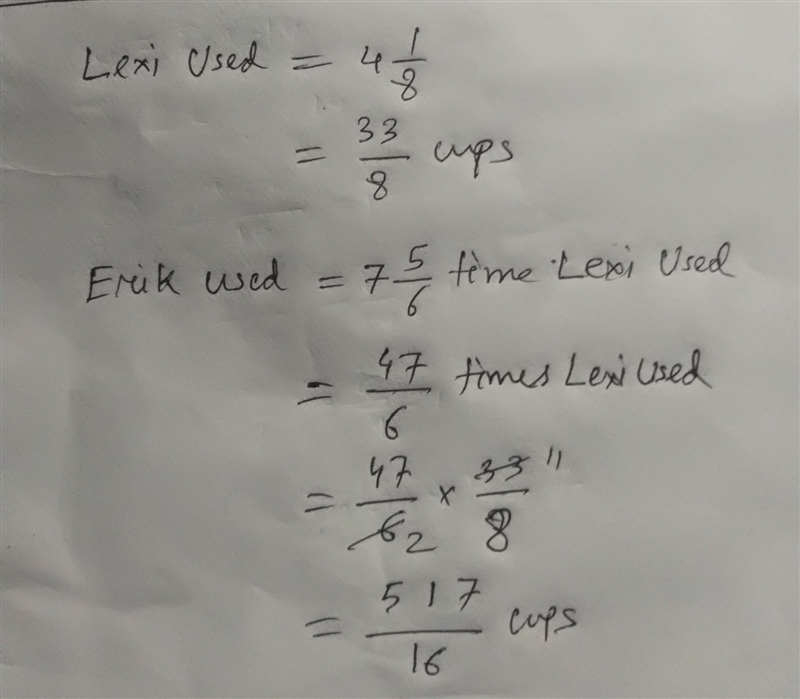 Lexi Used = 4 1/8
= 33/8 cups
Erik used = 7 5/6 time Lexi Used
= 47/6 times Lexi Used
= 47/6 2 × 33 11/8
= 517/16 cups